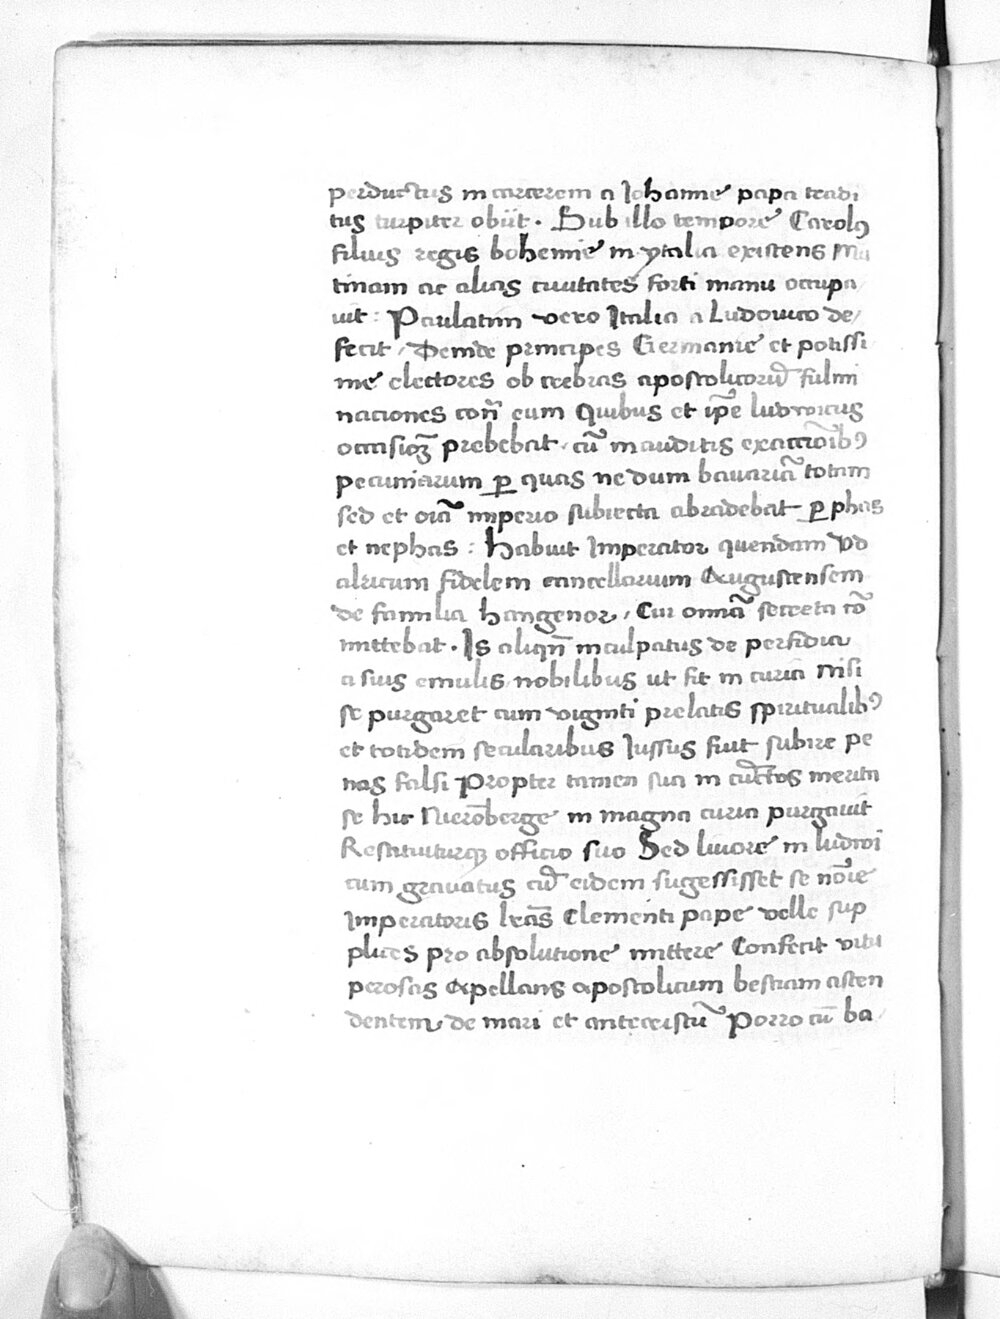 perductus in carcerem a Johanne papa tradi
tus turpiter obiit. Sub illo tempore Carolꝰ
filius regis bohemie in ytalia existens Mu
tinam ac alias ciuitates forti manu occupa
uit: Paulatim vero Italia a Ludouico de/
fecit / Deinde principes Germanie et potissi
me electores ob crebras apostolicorū fulmi
naciones cōn eum Quibus et ip̄e ludwicus
occasioꝫ prebebat cū inauditis exaccōibꝰ
pecuniarum ꝑ quas nedum bauariā totam
sed et oīa imperio subiecta abradebat ꝑ phas
et nephas: Habuit Imperator quendam Vd
alricum fidelem cancellarium Augustensem
de familia hangenor, Cui omnia secreta cō
mittebat. Is aliqn̄ inculpatus de perfidia
a suis emulis nobilibus ut fit in curia Nisi
se purgaret cum viginti prelatis spiritualibꝰ
et totidem secularibus Iussus fuit subire pe
nas falsi Propter tamen sua in cūctos merita
se hic Nierōberge in magna curia purgauit
Restituiturqꝫ officio suo Sed liuore in ludwi
cum grauatus cū eidem sugessisset se nōie
Imperatoris lrās Clementi pape velle sup
plices pro absolutione mittere Confecit vitu
perosas Appellans apostolicum bestiam asten
dentem de mari et antecristū Porro cū ba